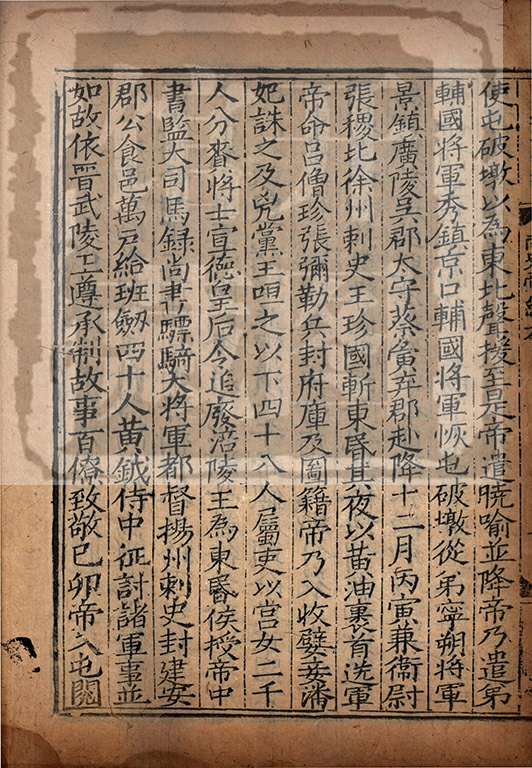 使屯破墩以為東北聲援至是帝遣曉喻並降帝乃遣弟
輔國將軍秀鎮京口輔國將軍恢屯破墩從弟寧朔將軍
景鎮廣陵吳郡太守蔡夤弃郡赴降十二月丙寅兼衞尉
張稷北徐州刺史王珍國斬東昏其夜以黃油裹首送軍
帝命呂僧珍張彌勒兵封府庫及圖籍帝乃入收嬖妾潘
妃誅之及兇黨王咺之以下四十八人屬吏以宮女二千
人分賚將士宣德皇后令追廢涪陵王為東昏侯授帝中
書監大司馬録尚書驃騎大將軍都督揚州刺史封建安
郡公食邑萬戶給班劒四十人黃鉞侍中征討諸軍事並
如故依晉武陵王遵承制故事百僚致敬己卯帝入屯閱